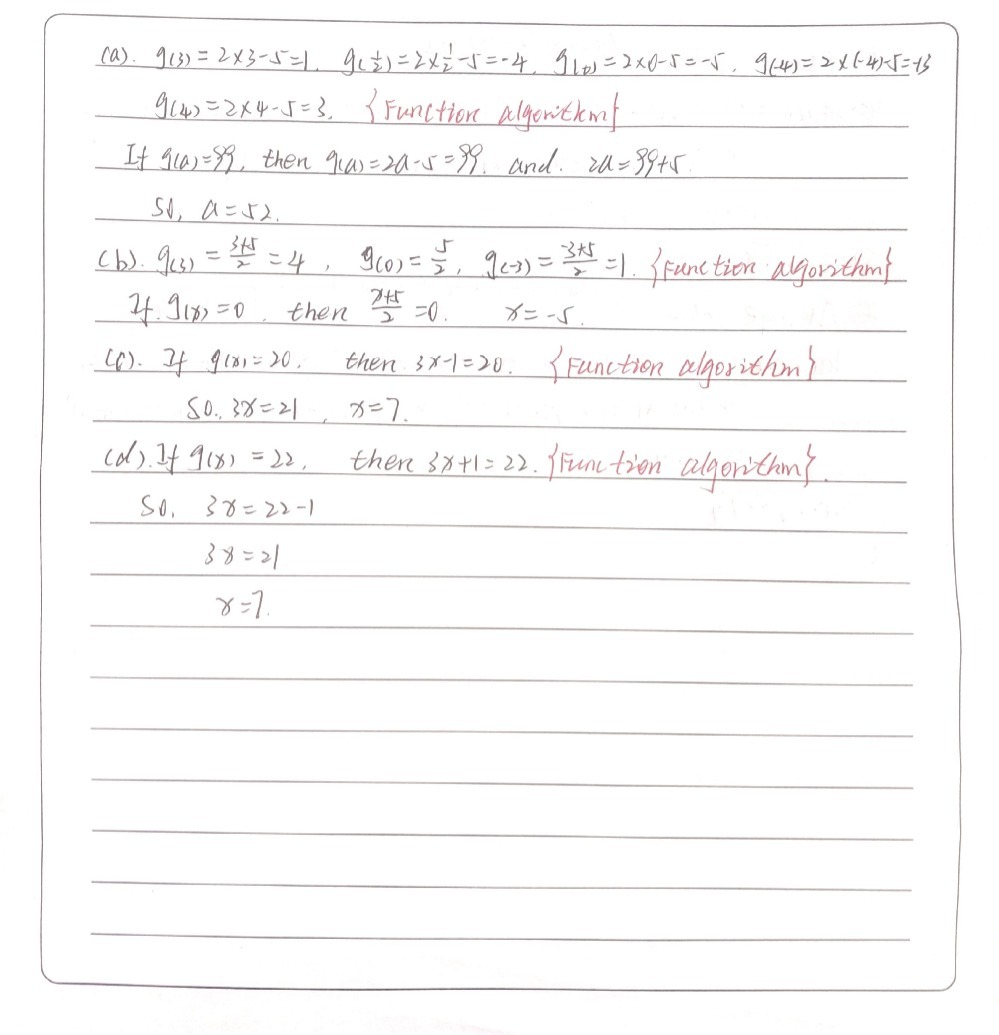 (a). g(3) = 2×3-5=1. g(½)=2×½-5=-4. g(0)=2×0-5=-5. g(-4)=2×(-4)-5=-13
g(4)=2×4-5=3. {Function algorithm}
If g(a)=99, then g(a)=2a-5=99. and. 2a=99+5.
So, a=52.
(b). g(3) = (3+5)/2 = 4, g(0)=5/2, g(-3)= (-3+5)/2 =1. {Function algorithm}
If. g(x)=0, then (x+5)/2 =0. x=-5.
(c). If g(x)=20, then 3x-1=20. {Function algorithm}
So., 3x=21, x=7.
(d). If g(x) = 22, then 3x+1=22. {Function algorithm}.
So, 3x=22-1
3x=21
x=7.